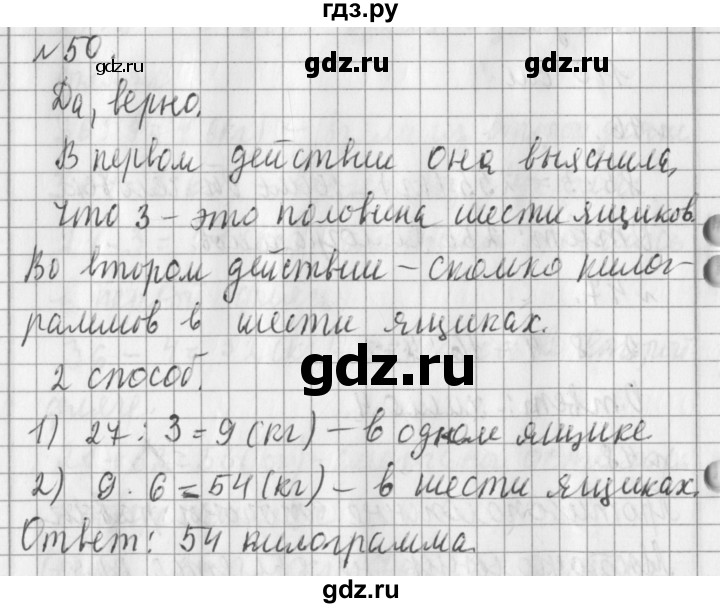 гдз.ру
№50.
gdz.ru gdz.ru gdz.ru
Да, верно.
В первом действии она выяснила,
что 3 – это половина шести ящиков.
Во втором действии – сколько килог-
раммов в шести ящиках.
2 способ.
gdz.ru
1) 27 : 3 = 9 (кг) – в одном ящике
2) 9 · 6 = 54 (кг) – в шести ящиках.
Ответ: 54 килограмма.
gdz.ru